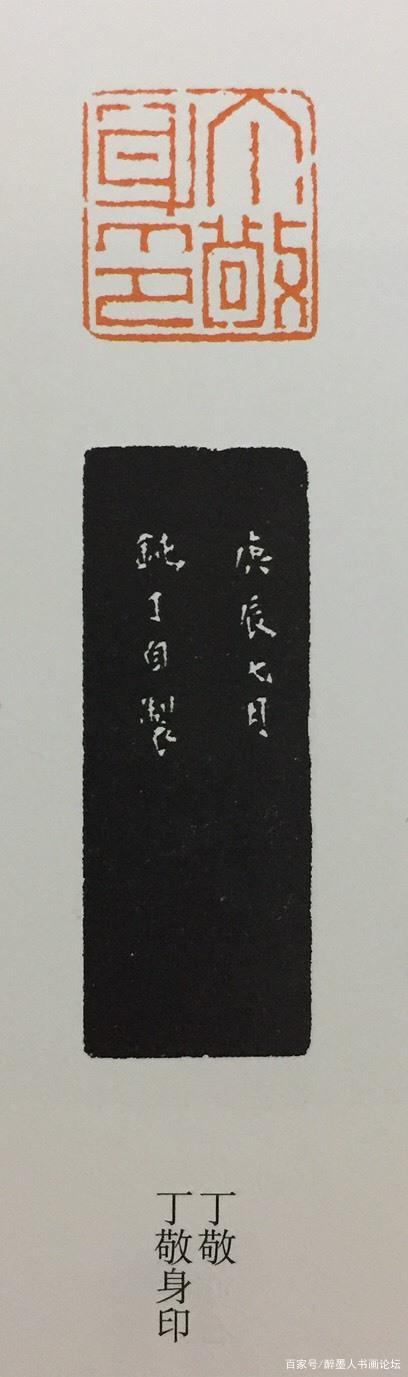 丁敬身印
庚辰七月
鈍丁自製
丁敬
丁敬身印
百家号/醉墨人书画论坛